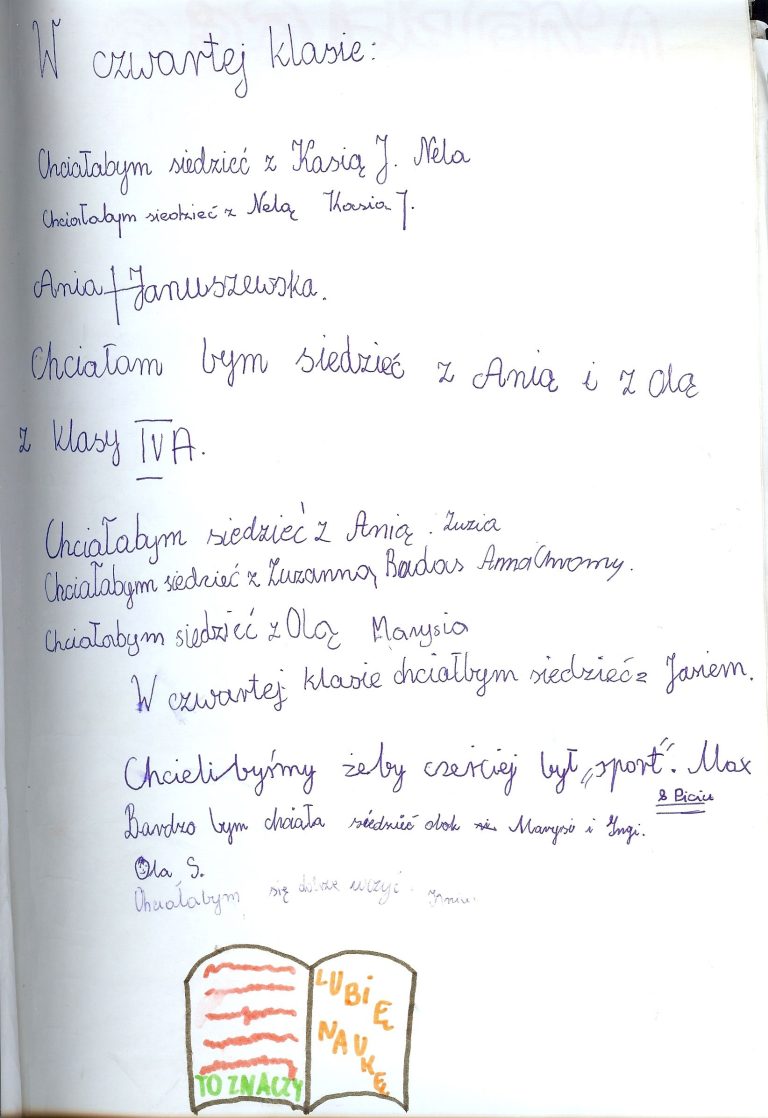 W czwartej klasie:
Chciałabym siedzieć z Kasią J. Nela
Chciałabym siedzieć z Nelą Kasia J.
Ania Januszewska.
Chciałam bym siedzieć z Anią i z Olą
z klasy IV A.
Chciałabym siedzieć z Anią. Zuzia
Chciałabym siedzieć z Zuzanną Badas Anna Chromy.
Chciałabym siedzieć z Olą Marysia
W czwartej klasie chciałbym siedzieć z Jasiem.
Chcieli byśmy żeby cześciej był „sport". Max
& Piciu
Bardzo bym chciała siedzieć obok Marysi i Ingi.
Ola S.
Chciałabym się dobrze uczyć.
TO ZNACZY
LUBIĘ
NAUKĘ